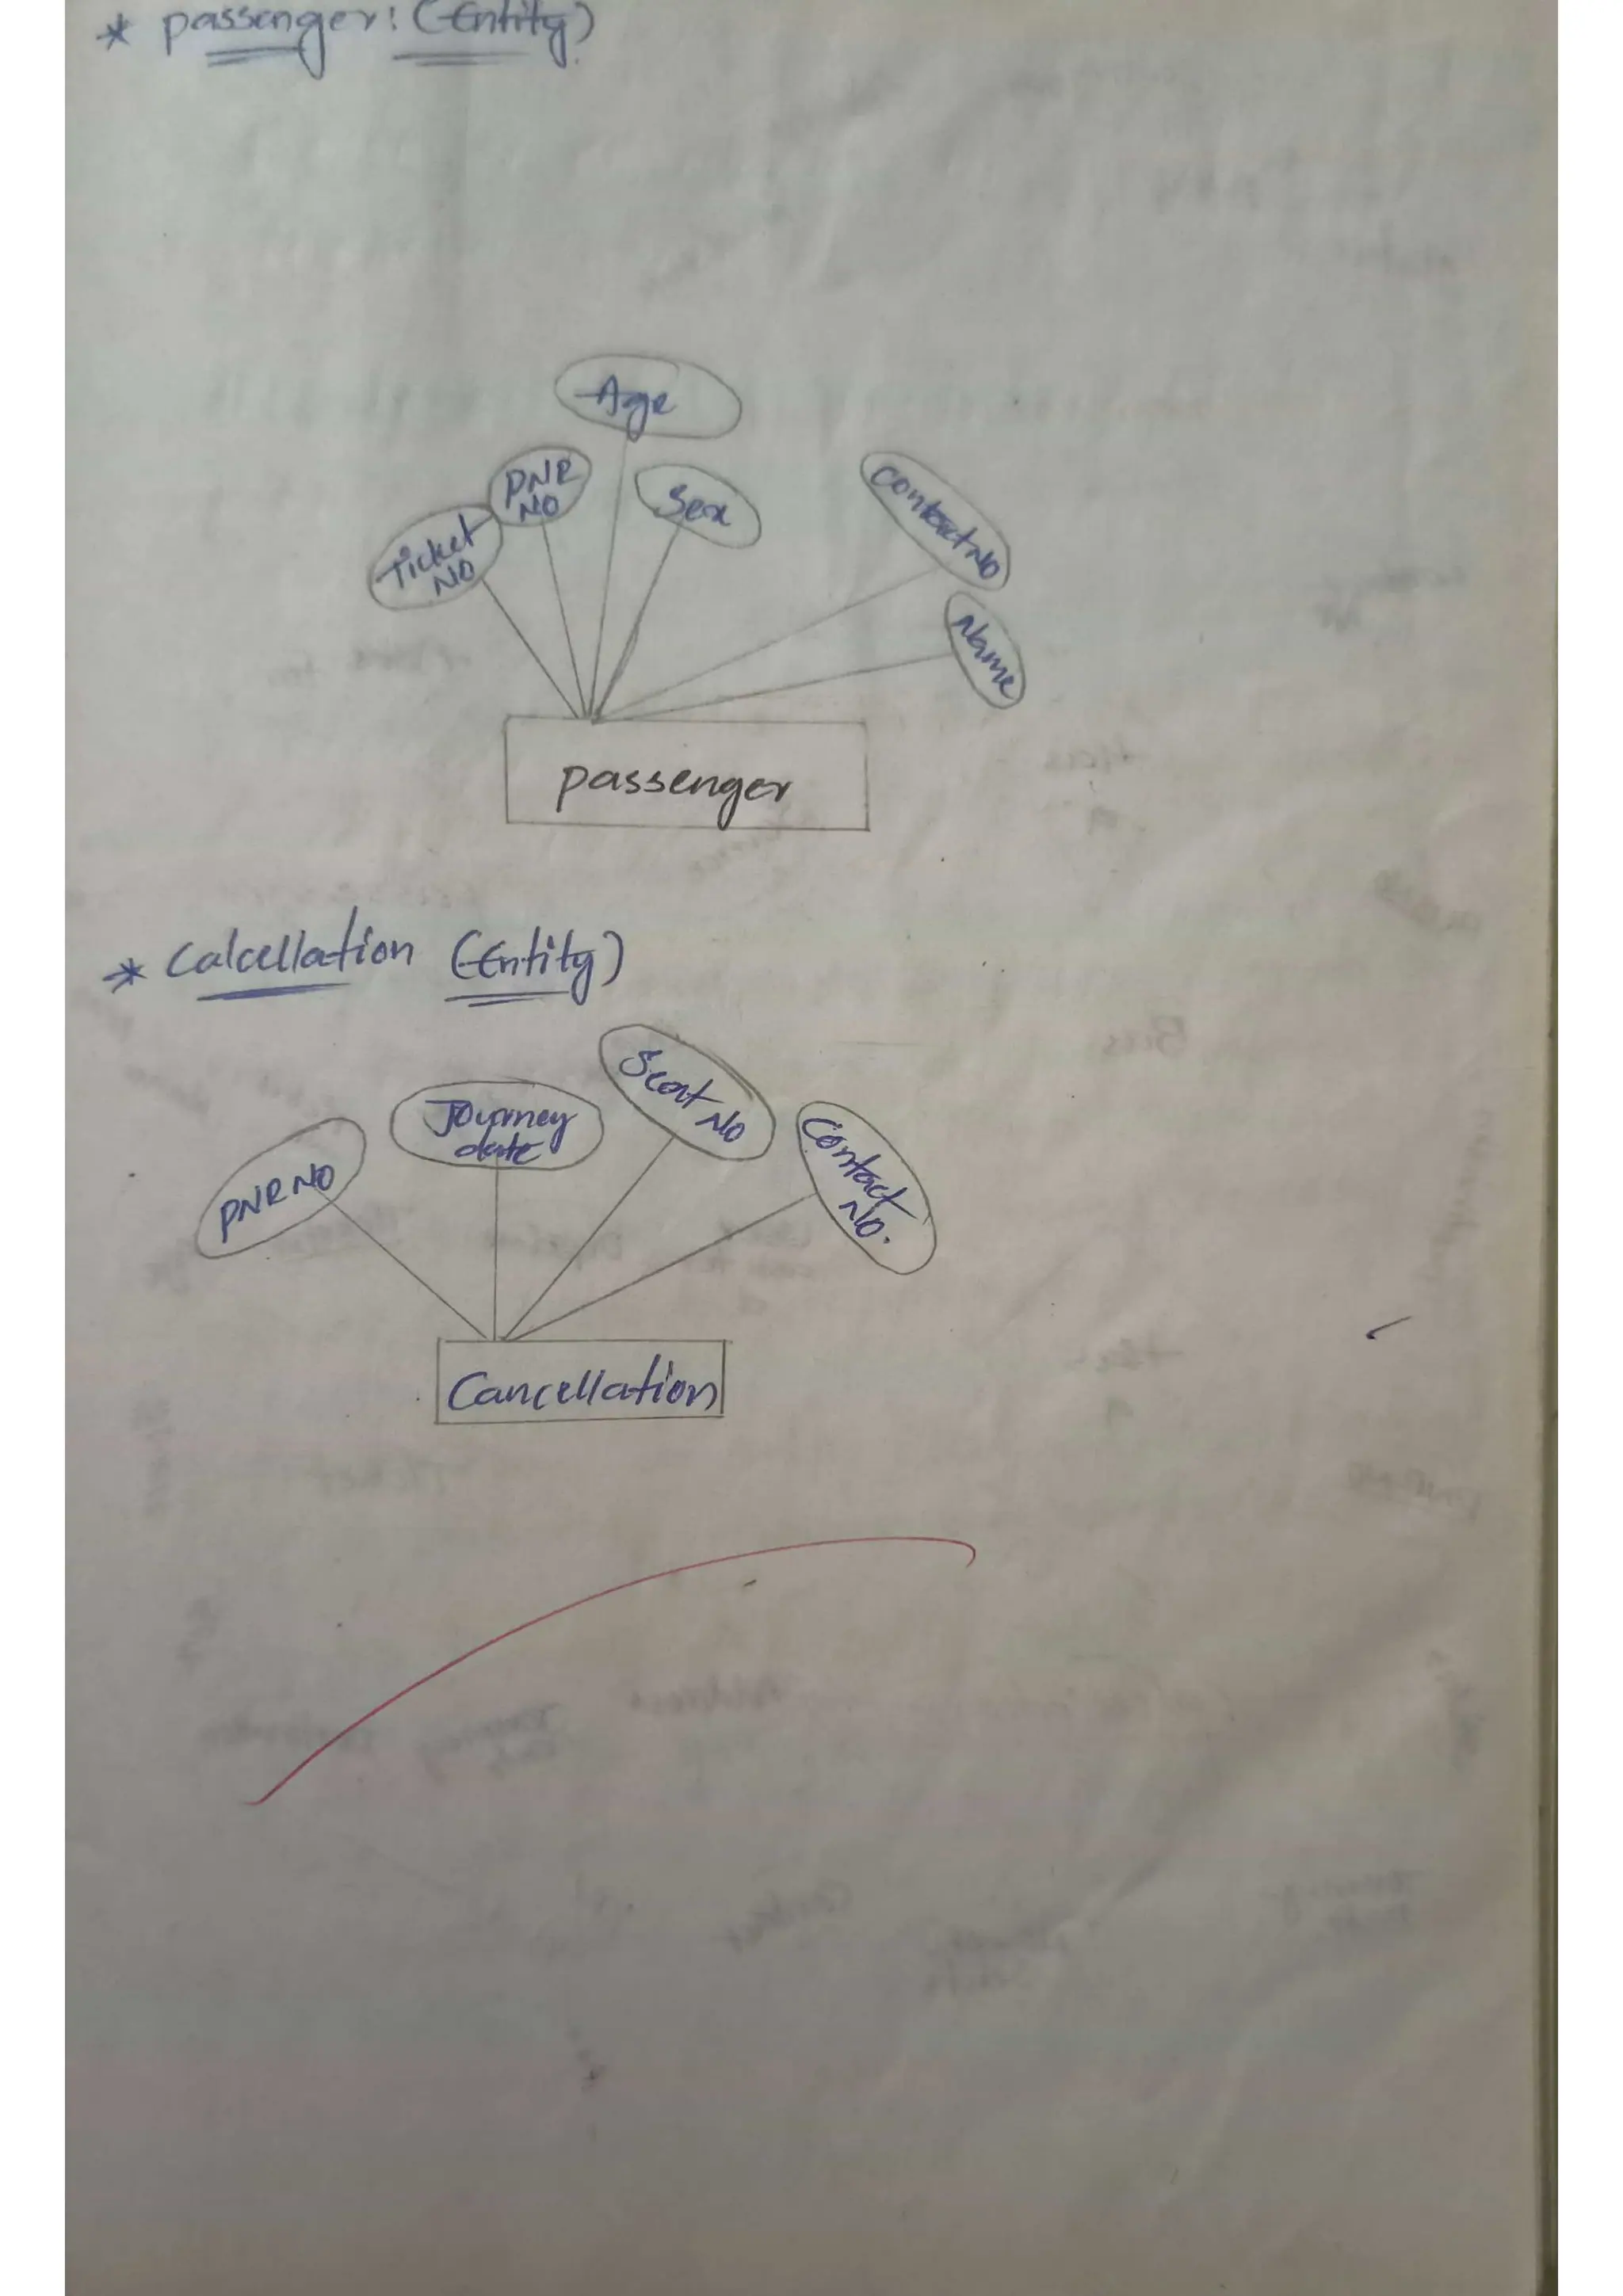 * passenger: (Entity)
Age
PNR
NO
Sex
Contact NO
Ticket
NO
Name
passenger
* Calcellation (Entity)
Seat NO
Journey
date
Contact
No.
PNR NO
Cancellation